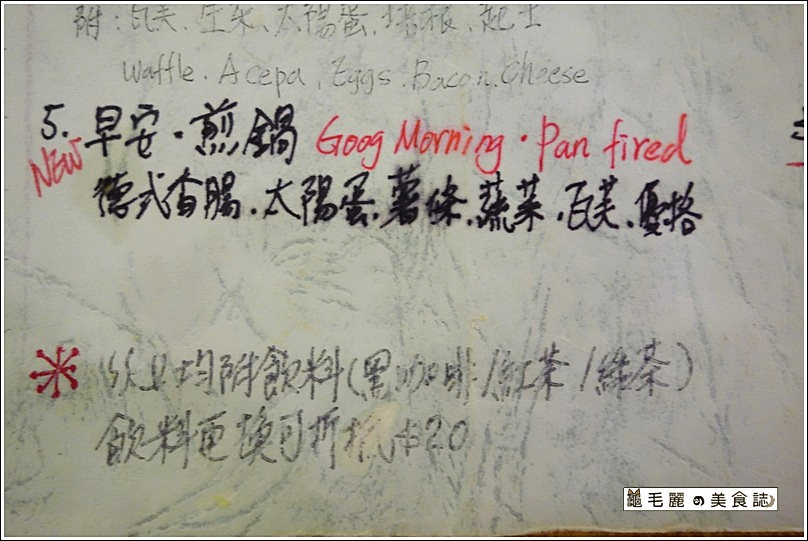 附:瓦芙、生菜、太陽蛋、培根、起士
Waffle. Acepa, Eggs. Bacon. Cheese
5. 早安·煎鍋 Goog Morning · Pan fired
NEW
德式香腸.太陽蛋.薯條.蔬菜.瓦芙.優格
※ 以上均附飲料(黑咖啡/紅茶/綠茶)
飲料更換可折抵$20
龜毛麗の美食誌